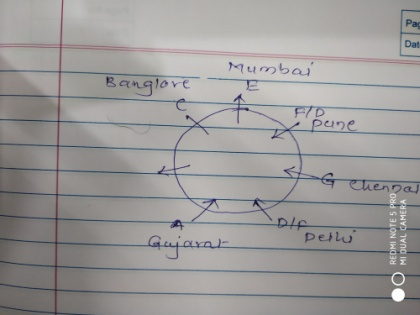 Pag
Date
Mumbai
Banglore
E
C
F/D
Pune
G
Chennai
A
D/F
Gujarat
Delhi
REDMI NOTE 5 PRO
MI DUAL CAMERA